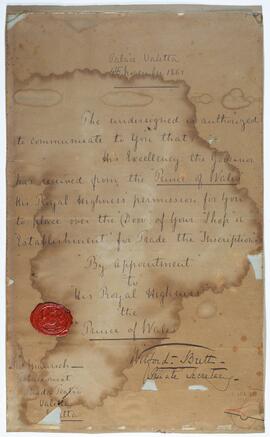 Palace Valetta
November 1862
The undersigned is authorized
to communicate to You that
His Excellency the Governor
has received from the Prince of Wales
His Royal Highness permission for You
to place over the Door of Your "Shop or
Establishment" for Trade the Inscription
"By Appointment
to
His Royal Highness
the
Prince of Wales"
Wilford Brett
Private Secretary
Valetta